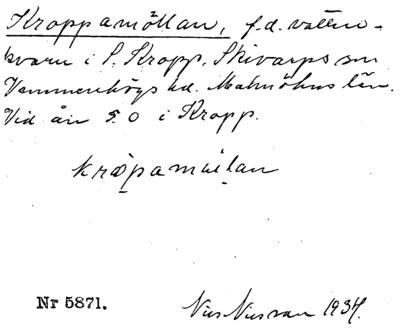 Kroppamöllan, f.d. vatten-
kvarn i S. Kropp. Skivarps sn
Vemmenhögs hd. Malmöhus län.
Vid ån s. o i Kropp.
Nr 5871. Nils Nilsson 1934.